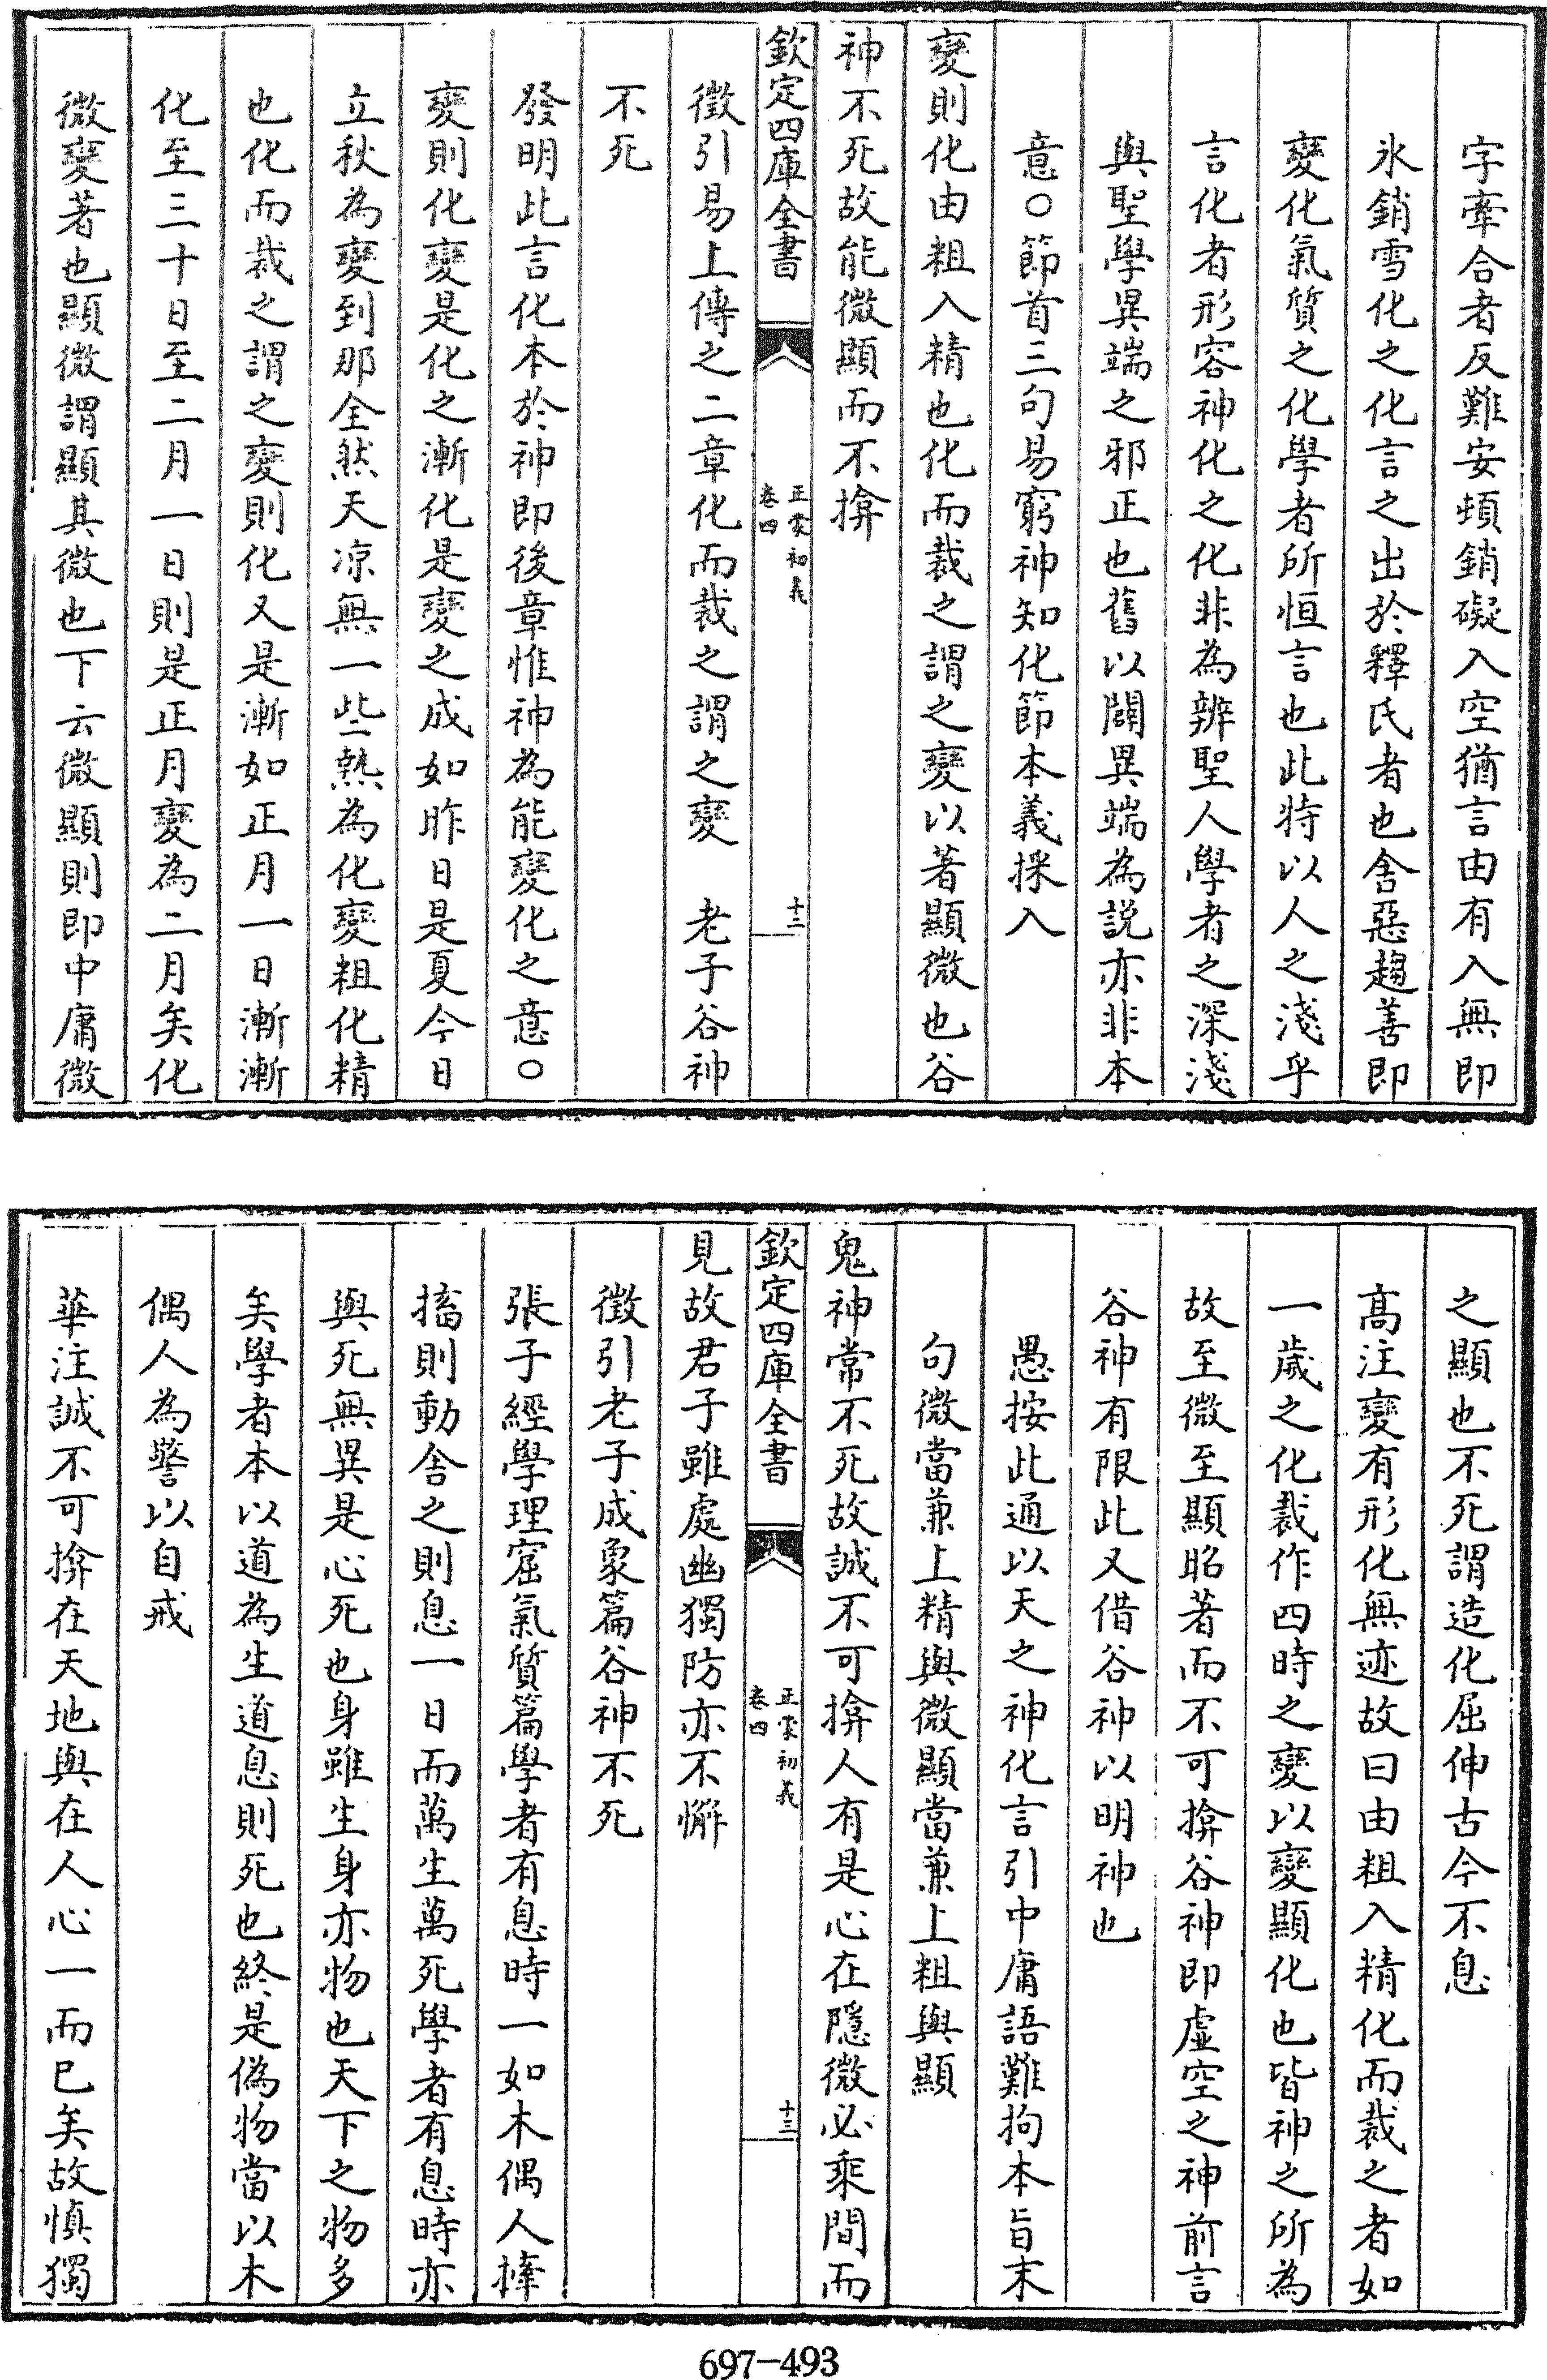 字牽合者反難安頓銷礙入空猶言由有入無即
氷銷雪化之化言之出於釋氏者也舍惡趨善即
變化氣質之化學者所恒言也此特以人之淺乎
言化者形容神化之化非為辨聖人學者之深淺
與聖學異端之邪正也舊以闢異端為説亦非本
意○節首三句易窮神知化節本義採入
變則化由粗入精也化而裁之謂之變以著顯微也谷
神不死故能微顯而不揜
欽定四庫全書
正蒙初義
卷四
十二
徵引易上傳之二章化而裁之謂之變 老子谷神
不死
發明此言化本於神即後章惟神為能變化之意○
變則化變是化之漸化是變之成如昨日是夏今日
立秋為變到那全然天凉無一些熱為化變粗化精
也化而裁之謂之變則化又是漸如正月一日漸漸
化至三十日至二月一日則是正月變為二月矣化
微變著也顯微謂顯其微也下云微顯則即中庸微
之顯也不死謂造化屈伸古今不息
髙注變有形化無迹故曰由粗入精化而裁之者如
一歲之化裁作四時之變以變顯化也皆神之所為
故至微至顯昭著而不可揜谷神即虛空之神前言
谷神有限此又借谷神以明神也
愚按此通以天之神化言引中庸語難拘本旨末
句微當兼上精與微顯當兼上粗與顯
鬼神常不死故誠不可揜人有是心在隱微必乘間而
欽定四庫全書
正蒙初義
卷四
十三
見故君子雖處幽獨防亦不懈
徵引老子成象篇谷神不死
張子經學理窟氣質篇學者有息時一如木偶人捧
搐則動舍之則息一日而萬生萬死學者有息時亦
與死無異是心死也身雖生身亦物也天下之物多
矣學者本以道為生道息則死也終是偽物當以木
偶人為警以自戒
華注誠不可揜在天地與在人心一而已矣故慎獨
697-493